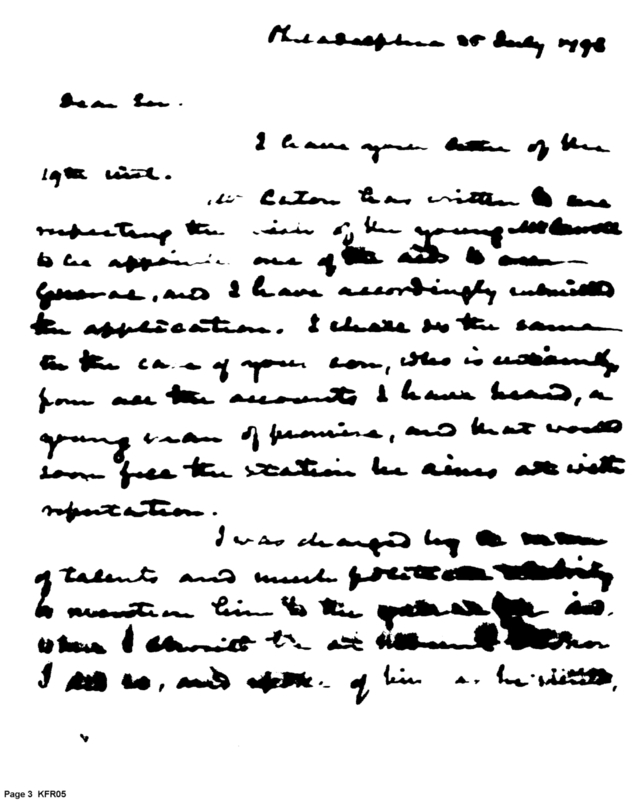 Philadelphia 25 July 1798
Dear Sir.
I have your letter of the
19th inst.
Mr Caton has written to me
respecting the wish of the young
to be appointed one of the aids to
General, and I have accordingly submitted
the application. I shall do the same
in the case of your son, who is certainly
from all the accounts I have heard, a
young man of promise, and that would
soon fill the station he aims at with
reputation.
I was charged by
of talents and much
to mention him to the
where I should be at
I did so, and of him as he
Page 3 KFR05